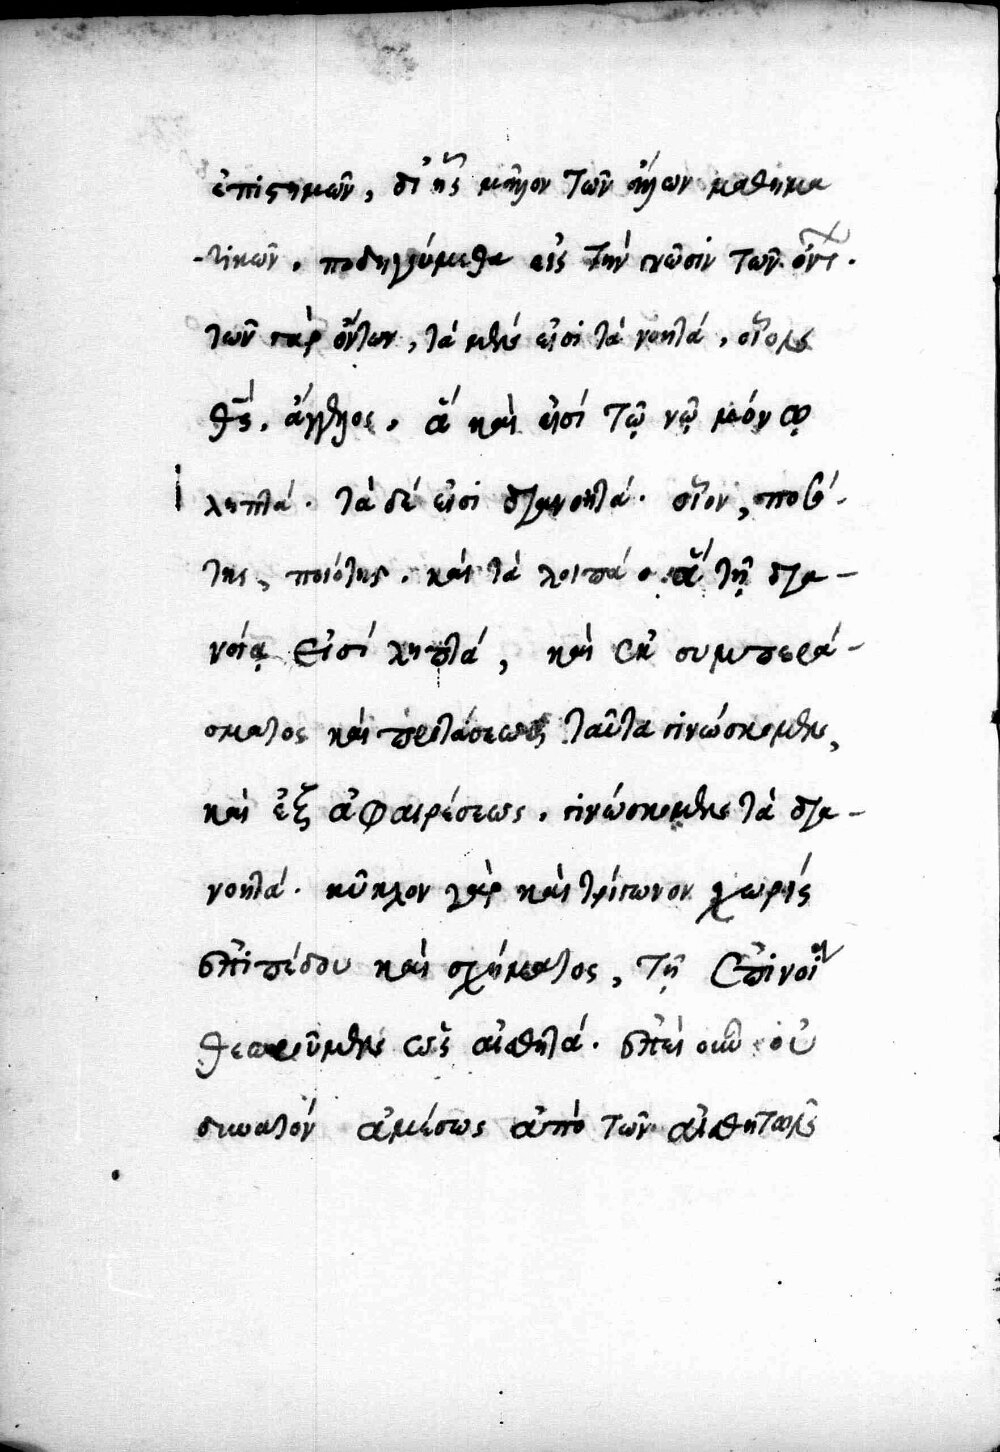 ἐπιστημῶν, δι' ἧς μᾶλλον τῶν ἄλλων μαθημα
-τικῶν. ποδηγούμεθα εἰς τὴν γνῶσιν τῶν ὄντ.
τῶν γὰρ ὄντων, τὰ μέν εἰσι τὰ νοητά, οἷον
θς. ἄγγελος. ἅ καὶ εἰσί τῷ νῷ μόνῳ
ληπτά. τὰ δέ εἰσι διανοητά. οἷον, ποσό-
της, ποιότης. καὶ τὰ λοιπά. ἅ τῇ δια-
νοίᾳ εἰσί ληπτά, καὶ ἐκ συμπερά-
σματος καὶ προτάσεως ταῦτα γινώσκομεν,
καὶ ἐξ ἀφαιρέσεως. γινώσκομεν τὰ δια-
νοητά. κύκλον γὰρ καὶ τρίγωνον χωρίς
ἐπιπέδου καὶ σχήματος, τῇ ἐπινοίᾳ
θεωροῦμεν ὡς αἰσθητά. ἐπεὶ οὖν οὐ
δυνατόν ἀμέσως ἀπὸ τῶν αἰσθητῶν